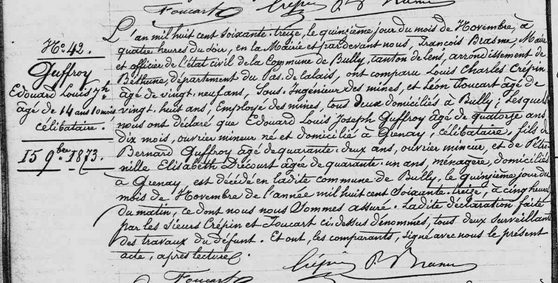 Foucart Crépin
No. 42.
Guffroy
Edouard Louis Jph
âgé de 14 ans 10 mois
célibataire.
15 9bre 1873.
L'an mil huit cent Soixante-treize, le quinzième jour du mois de Novembre, à
quatre heures du soir, en la Mairie et pardevant nous, François Brasme, Maire
et officier de l'état civil de la Commune de Bully, canton de Lens, arrondissement de
Béthune, département du Pas de Calais, ont comparu Louis Charles Crépin
âgé de vingt-neuf ans, Sous-Ingénieur des mines, et Léon Foucart âgé de
vingt-huit ans, Employé des mines, tous deux domiciliés à Bully; Lesquels
nous ont déclaré que Edouard Louis Joseph Guffroy âgé de quatorze ans
dix mois, ouvrier mineur né et domicilié à Grenay, célibataire, fils de
Bernard Guffroy âgé de quarante-deux ans, ouvrier mineur, et de Pétro
nille Elisabeth Decourt âgée de quarante-un ans, ménagère, domiciliés
à Grenay, est décédé en ladite commune de Bully, le quinzième jour du
mois de Novembre de l'année mil huit cent Soixante-treize, à cinq heures
du matin, ce dont nous nous Sommes assuré. La dite déclaration faite
par les Sieurs Crépin et Foucart ci-dessus dénommés, tous deux Surveillants
des travaux du défunt. Et ont, les comparants, signé avec nous le présent
acte, après lecture.
Foucart Crépin Brasme